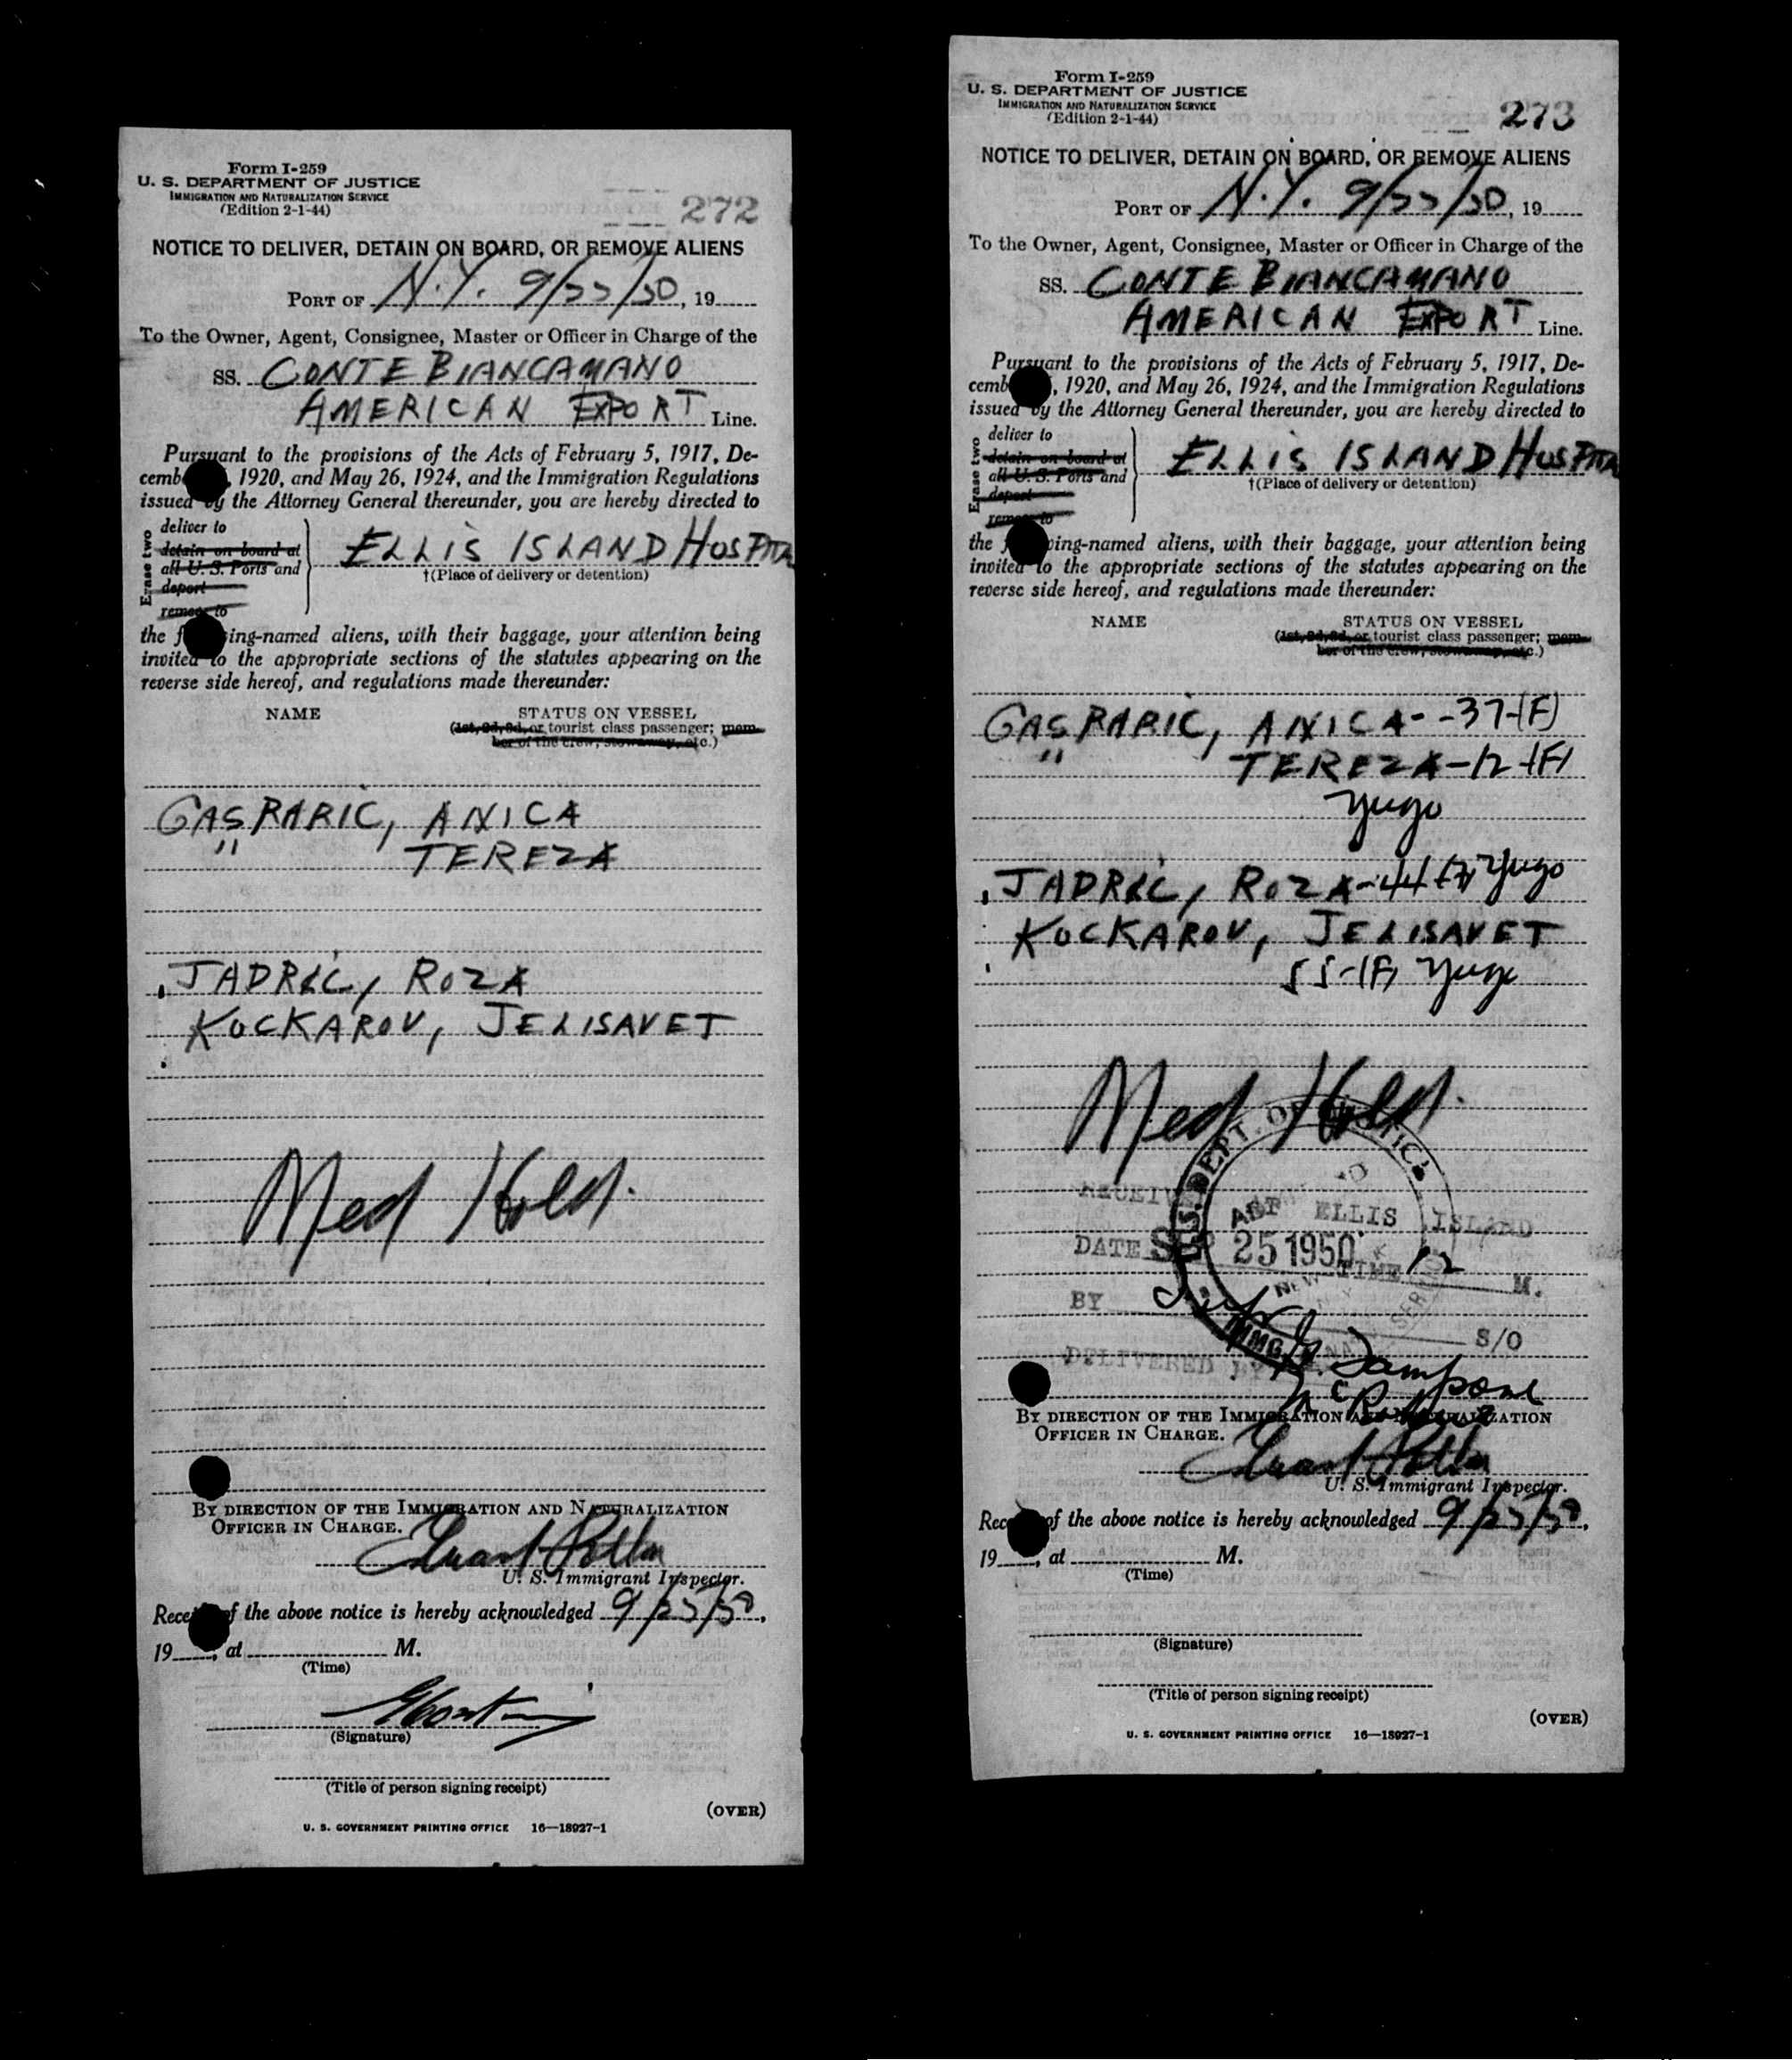 Form I-259
U. S. DEPARTMENT OF JUSTICE
IMMIGRATION AND NATURALIZATION SERVICE
(Edition 2-1-44)
272
NOTICE TO DELIVER, DETAIN ON BOARD, OR REMOVE ALIENS
PORT OF N.Y. 9/25/50, 19
To the Owner, Agent, Consignee, Master or Officer in Charge of the
SS. CONTE BIANCAMANO
AMERICAN EXPORT Line.
Pursuant to the provisions of the Acts of February 5, 1917, De-
cemb 1920, and May 26, 1924, and the Immigration Regulations
issued by the Attorney General thereunder, you are hereby directed to
Erase two
deliver to
detain on board at
all U. S. Ports and
deport
remove to
ELLIS ISLAND HOSPITA
†(Place of delivery or detention)
the f ing-named aliens, with their baggage, your attention being
invited to the appropriate sections of the statutes appearing on the
reverse side hereof, and regulations made thereunder:
NAME STATUS ON VESSEL
(1st, 2d, 3d, or tourist class passenger; mem-
ber of the crew, stowaway, etc.)
GASPARIC, ANICA
" TEREZA
JADRIC, ROZA
KOCKAROV, JELISAVET
Med Held.
BY DIRECTION OF THE IMMIGRATION AND NATURALIZATION
OFFICER IN CHARGE.
U. S. Immigrant Inspector.
Recei f the above notice is hereby acknowledged 9/25/50,
19 , at M.
(Time)
(Signature)
(Title of person signing receipt)
(OVER)
U. S. GOVERNMENT PRINTING OFFICE 16—18927-1
Form I-259
U. S. DEPARTMENT OF JUSTICE
IMMIGRATION AND NATURALIZATION SERVICE
(Edition 2-1-44)
273
NOTICE TO DELIVER, DETAIN ON BOARD, OR REMOVE ALIENS
PORT OF N.Y. 9/25/50, 19
To the Owner, Agent, Consignee, Master or Officer in Charge of the
SS. CONTE BIANCAMANO
AMERICAN EXPORT Line.
Pursuant to the provisions of the Acts of February 5, 1917, De-
cemb , 1920, and May 26, 1924, and the Immigration Regulations
issued by the Attorney General thereunder, you are hereby directed to
Erase two
deliver to
detain on board at
all U. S. Ports and
deport
remove to
ELLIS ISLAND HOSPITA
†(Place of delivery or detention)
the f ing-named aliens, with their baggage, your attention being
invited to the appropriate sections of the statutes appearing on the
reverse side hereof, and regulations made thereunder:
NAME STATUS ON VESSEL
(1st, 2d, 3d, or tourist class passenger; mem-
ber of the crew, stowaway, etc.)
GASPARIC, ANICA--37-(F)
" TEREZA-12-(F)
yugo
JADRIC, ROZA-44 (F) yugo
KOCKAROV, JELISAVET
55-(F) yugo
Med Held.
U.S. DEPT. OF JUSTICE
RECEIVED AT ELLIS ISLAND
DATE SEP 25 1950 TIME 12 M.
BY S/O
DELIVERED BY
BY DIRECTION OF THE IMMIGRATION AND NATURALIZATION
OFFICER IN CHARGE.
U. S. Immigrant Inspector.
Rece of the above notice is hereby acknowledged 9/25/50,
19 , at M.
(Time)
(Signature)
(Title of person signing receipt)
(OVER)
U. S. GOVERNMENT PRINTING OFFICE 16—18927-1